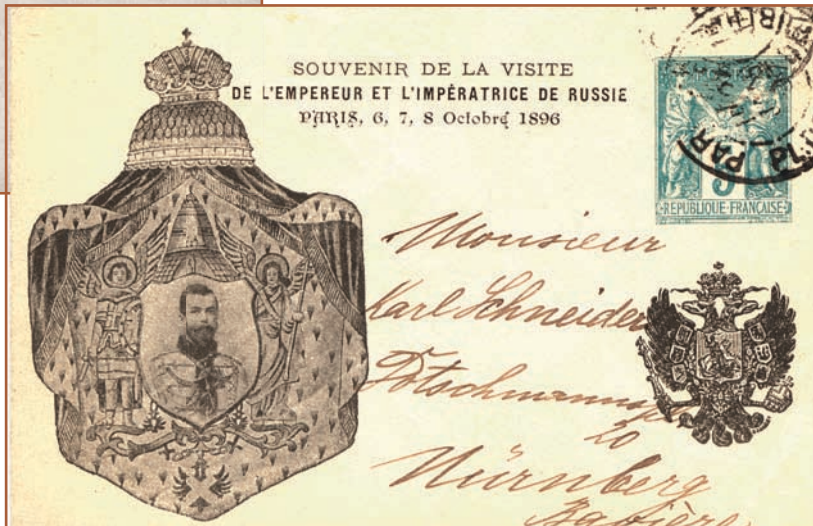 SOUVENIR DE LA VISITE
DE L'EMPEREUR ET L'IMPÉRATRICE DE RUSSIE
PARIS, 6, 7, 8 Octobre 1896
PAR
5
REPUBLIQUE FRANÇAISE
Monsieur
Karl Schneider
20
Nürnberg
Bavière